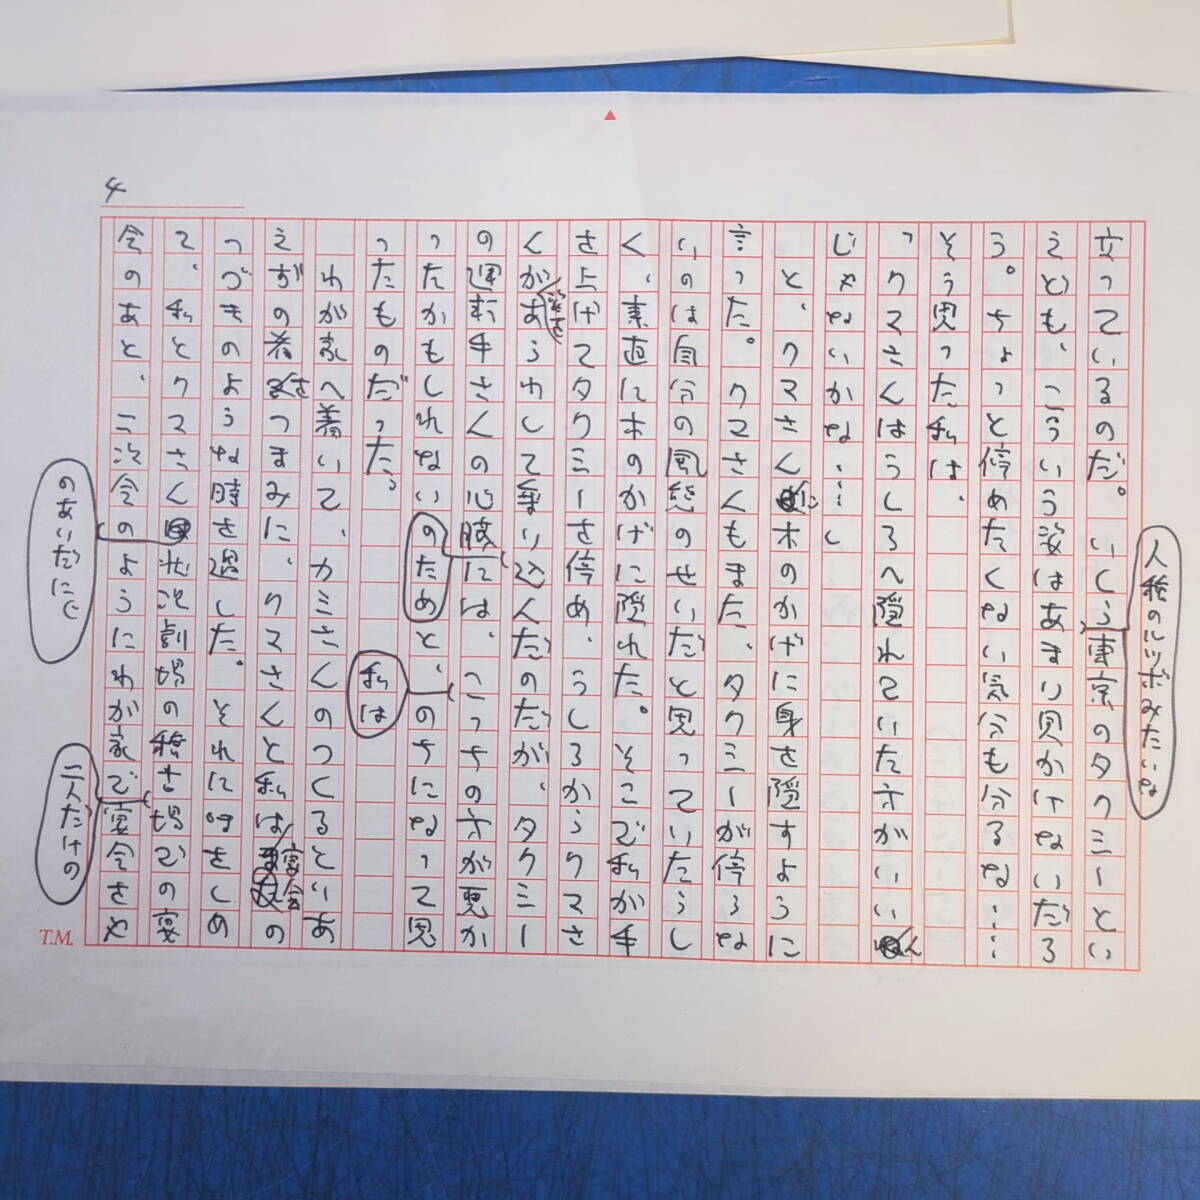 4
人種のルツボみたいな
立っているのだ。いくら東京のタクシーとい
えども、こういう姿はあまり見かけないだろ
う。ちょっと停めたくない気分も分るな……
そう思った私は、
「クマさんはうしろへ隠れていた方がいいん
じゃないかな……」
と、クマさんに木のかげに身を隠すように
言った。クマさんもまた、タクシーが停らな
いのは自分の風態のせいだと思っていたらし
く、素直に木のかげに隠れた。そこで私が手
を上げてタクシーを停め、うしろからクマさ
くがあらわして乗り込んだのだが、タクシー
の運転手さんの心臓には、こっちの方が悪か
ったかもしれないと、のちになって思
のため
私は
ったものだった。
わが家へ着いて、カミさんのつくるとりあ
えずの肴をつまみに、クマさんと私は宴会の
つづきのような時を過した。それに味をしめ
て、私とクマさんは状況劇場の稽古場での宴
会のあと、二次会のようにわが家で宴会をや
のあいだにで
二人だけの
T.M.